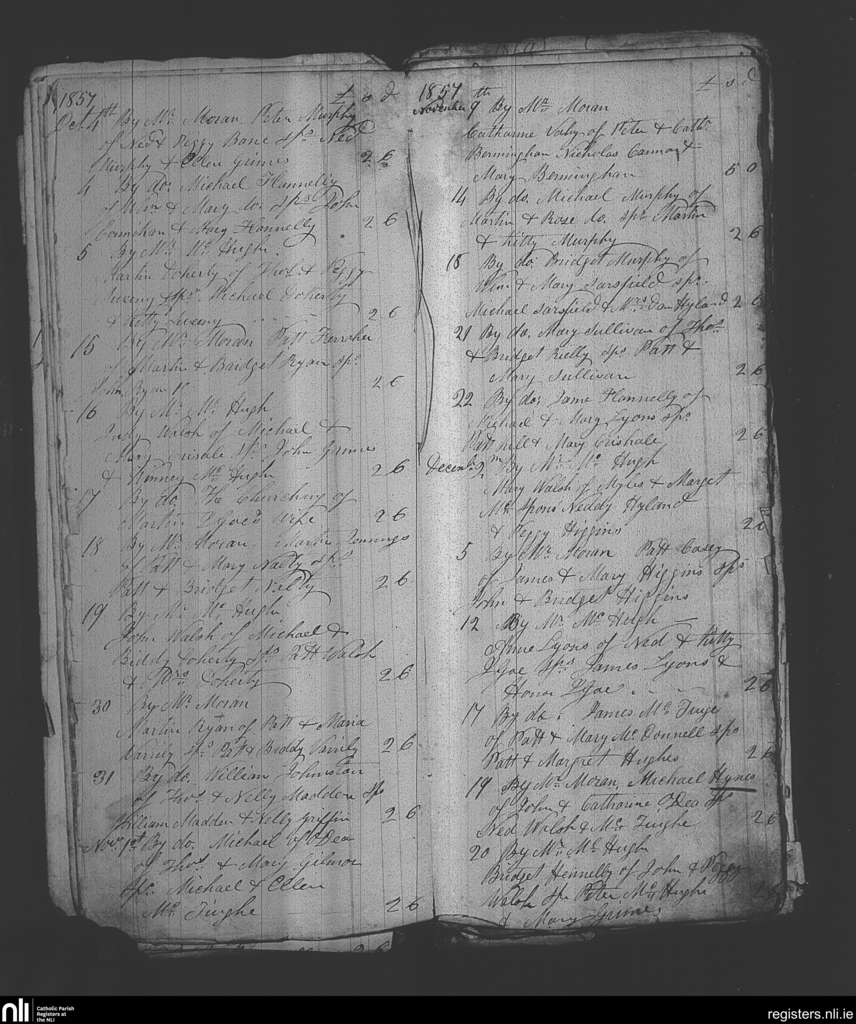 1857 £ s d
Oct. 4th By Mr Moran Peter Murphy
of Ned & Peggy Bane sps Ned
Murphy & Ellen Grimes 2 6
4 By do. Michael Flannelly
of & Mary do. sps John
& Flannelly 2 6
5 By Mr Mc Hugh
Martin Doherty of Thos & Peggy
sps. Michael Doherty
& Kitty 2 6
15 By Mr Moran Patt
of Martin & Bridget Ryan sps.
Ryan 2 6
16 By Mr. Mc Hugh
Judy Walsh of Michael &
Mary sps. John Grimes
& Mc Hugh 2 6
17 By do. The Churching of
Martin Wife 2 6
18 By Mr. Moran Martin Jennings
of Patt & Mary Neilly sps
Patt & Bridget Neilly 2 6
19 By Mr. Mc Hugh
John Walsh of Michael &
Biddy Doherty sps Patt Walsh
& Doherty 2 6
30 By Mr. Moran
Martin Ryan of Patt & Maria
sps. & Biddy 2 6
31 By do. William Johnston
of Thos. & Nelly Madden sps
William Madden & Nelly Griffin 2 6
Novr. 1st By do. Michael Dea
of Thos. & Mary
sps. Michael & Ellen
Mc. Turghe 2 6
1857 £ s d
November 9th By Mr. Moran
Catharine of Peter & Cathe.
Bermingham Nicholas Cannon &
Mary Bermingham 5 0
14 By do. Michael Murphy of
Martin & Rose do. sps. Martin
& Kitty Murphy 2 6
18 By do. Bridget Murphy of
Wm & Mary Sarsfield sps.
Michael Sarsfield & Mrs. Dan Hyland 2 6
21 By do. Mary Sullivan of Thos.
& Bridget Reilly sps Patt &
Mary Sullivan 2 6
22 By do. Jame Flannelly of
Michael & Mary Lyons sps.
Patt & Mary 2 6
Decemb. 2nd By Mr. Mc. Hugh
Mary Walsh of Myles & Marget
Spons Neddy Hyland
& Peggy Higgins 2 6
5 By Mr. Moran Patt Casey
of James & Mary Higgins sps
John & Bridget Higgins
12 By Mr. Mc Hugh
Anne Lyons of Ned & Kitty
sps. James Lyons &
Honor 2 6
17 By do. James Mc.
of Patt & Mary Mc. Donnell sps
Patt & Margret Hughes 2 6
19 By Mr. Moran, Michael Hynes
of John & Catharine O'Dea sps
Ned Walsh & Mc. Turghe 2 6
20 By Mr. Mc. Hugh
Bridget Hennelly of John & Peggy
Walsh sps Peter Mc. Hugh
& Mary Grimes
nli
Catholic Parish
Registers at
the NLI
registers.nli.ie